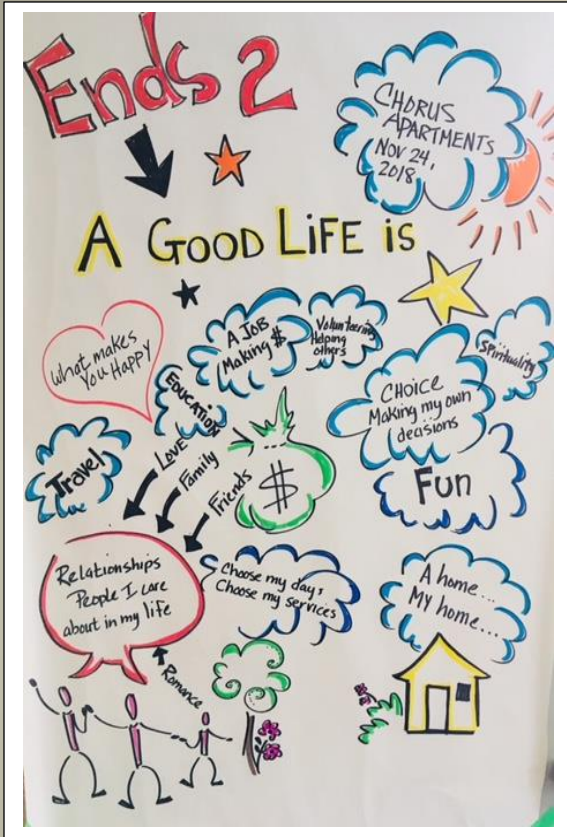 Ends 2
CHORUS
APARTMENTS
NOV 24,
2018
A GOOD LiFE iS
What makes
You Happy
EDUCATION
A JOB
Making $
Volunteering
Helping
others
Spirituality
CHOICE
Making my own
decisions
Fun
Travel
LOVE
Family
Friends
$
Relationships
People I care
about in my life
Romance
Choose my days
Choose my services
A home...
MY home...